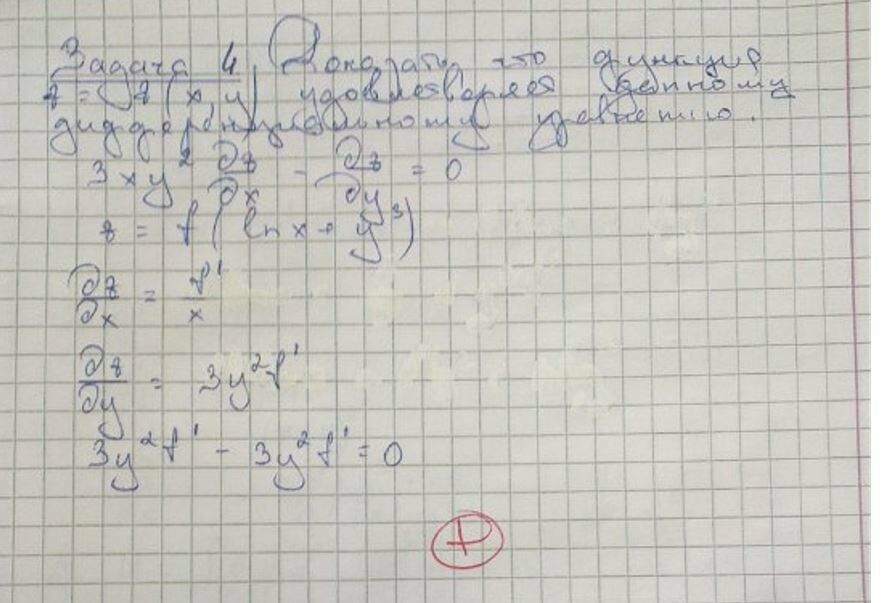 Задача 4. Доказать, что функция
z = z(x, y) удовлетворяет данному
дифференциальному уравнению.
3xy² ∂z/∂x - ∂z/∂y = 0
z = f(ln x + y³)
∂z/∂x = f'/x
∂z/∂y = 3y² f'
3y² f' - 3y² f' = 0
+